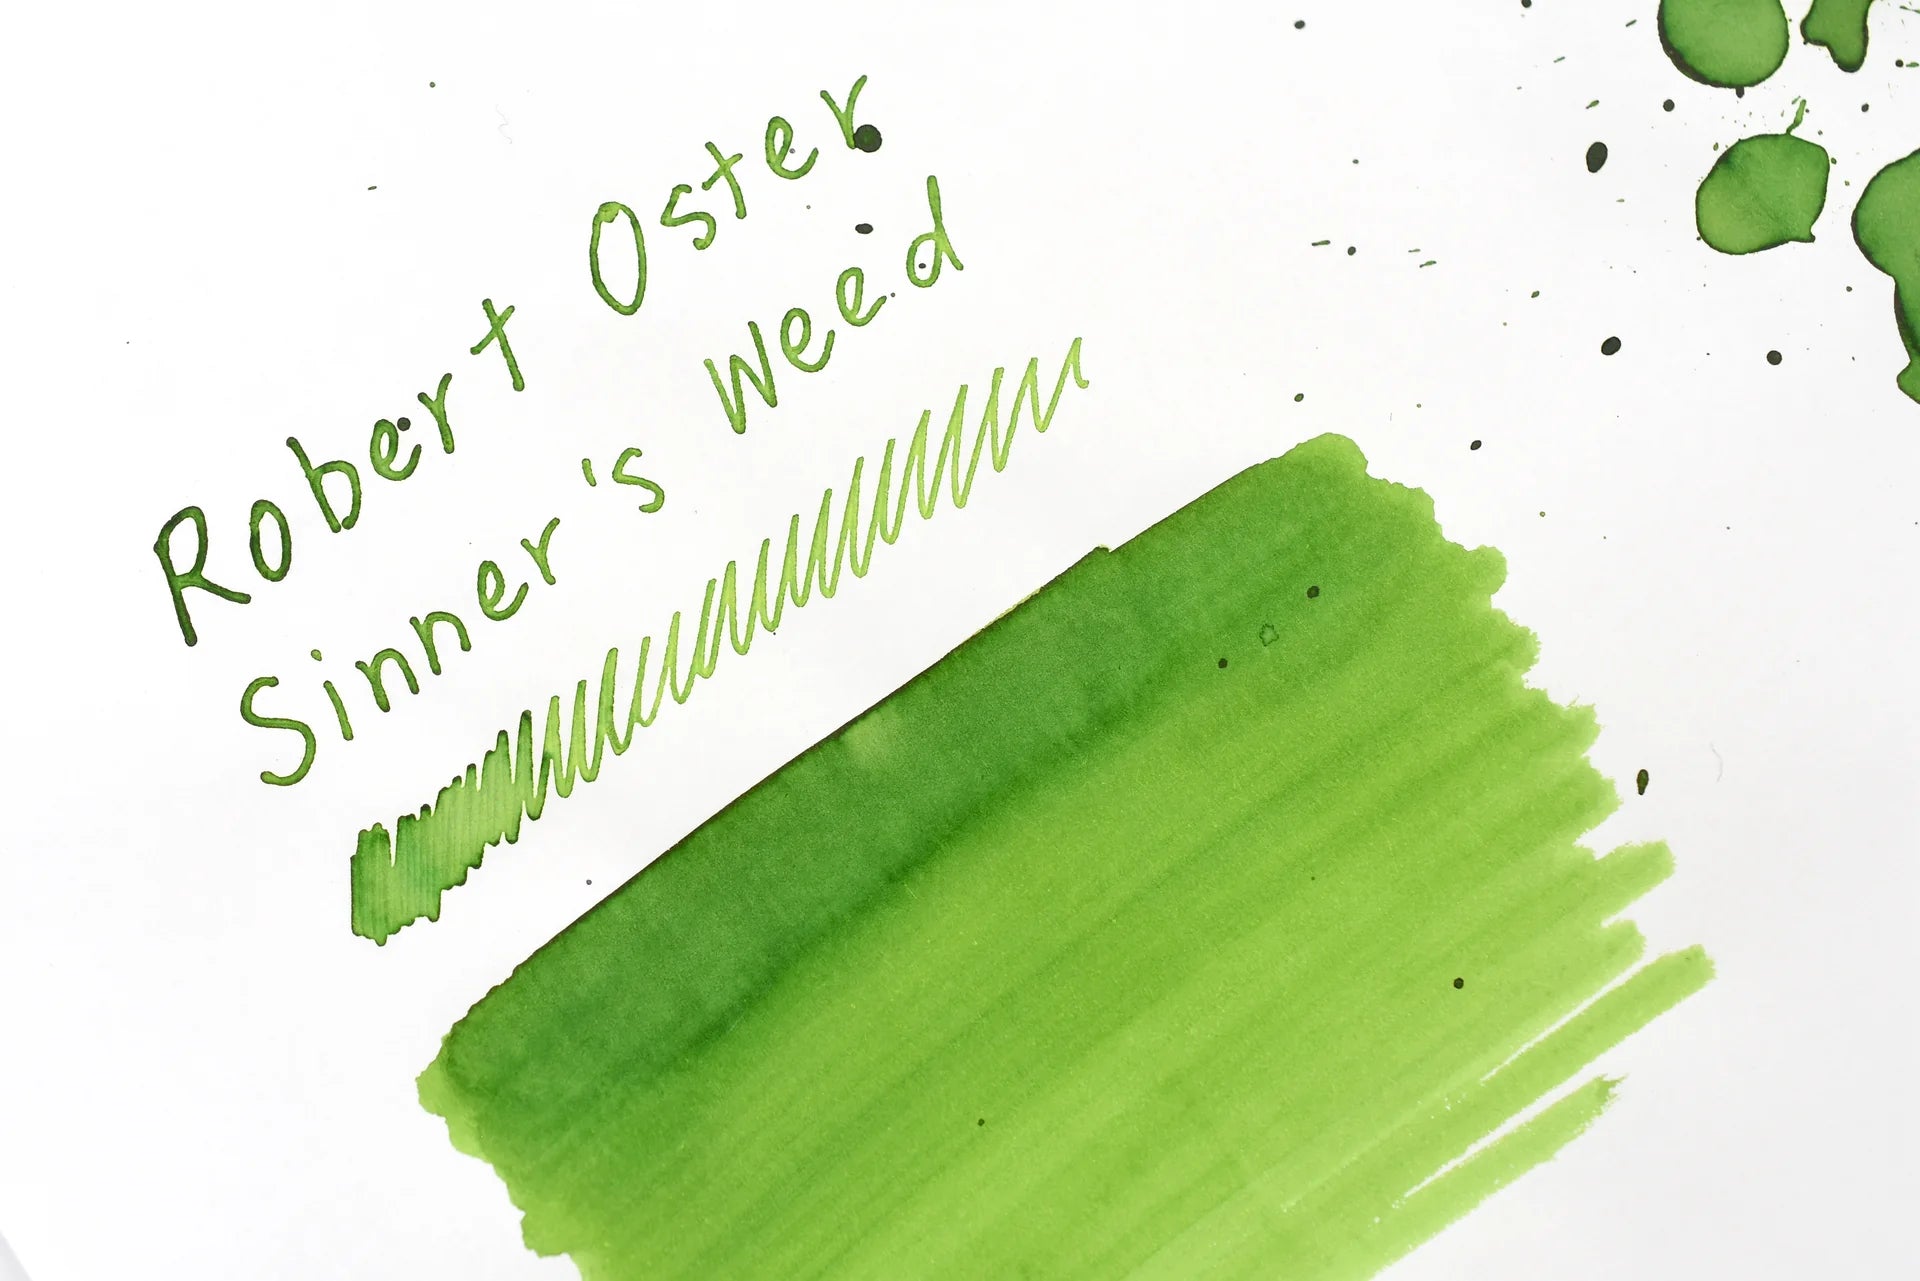 Robert Oster
Sinner's weed